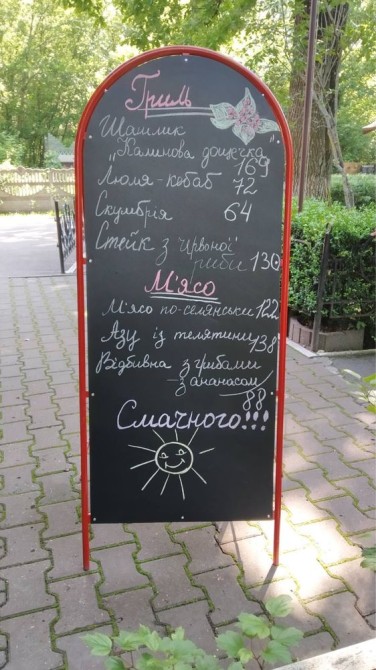 Гриль
Шашлик
"Калинова дощечка"
169
Люля-кебаб 72
Скумбрія 64
Стейк з червоної
риби 130
М'ясо
М'ясо по-селянськи 122
Азу із телятини 138
Відбивна з грибами
з ананасом
88
Смачного!!!